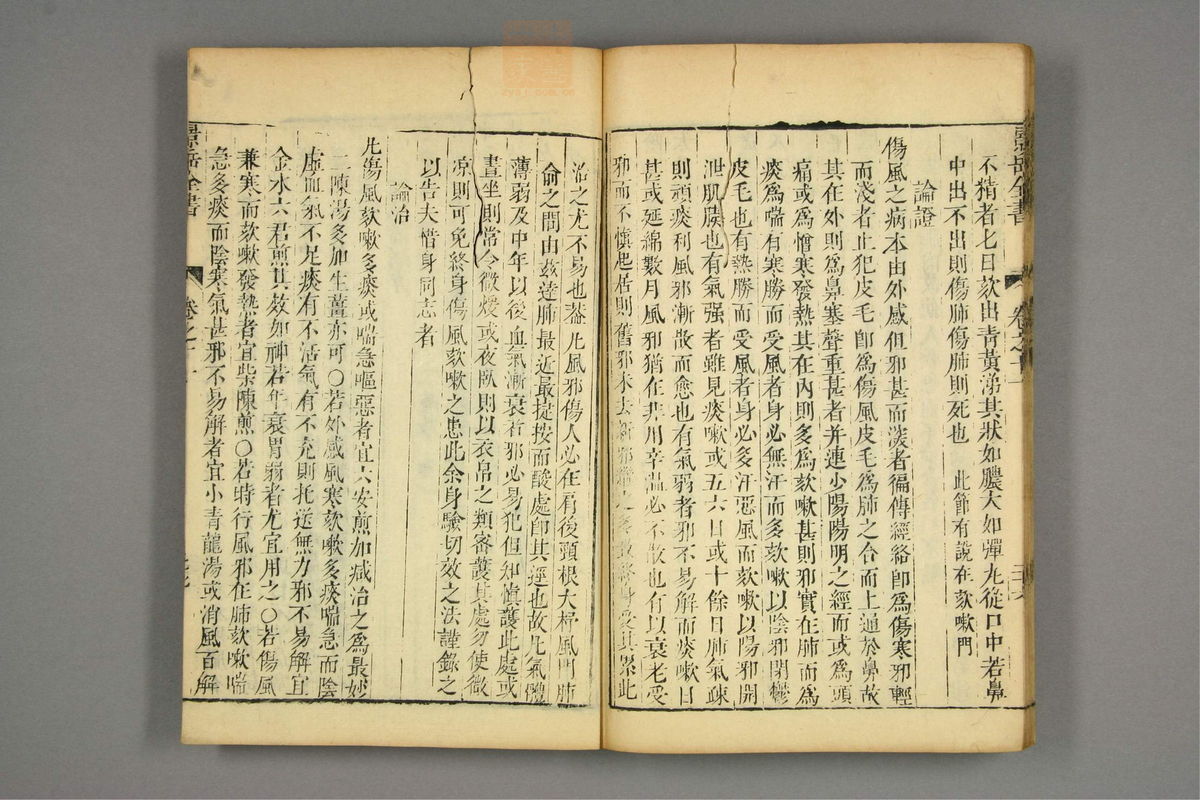 景岳全書
卷之十一
不精者七日欬出青黃涕其狀如膿大如彈丸從口中若鼻
中出不出則傷肺傷肺則死也 此節有說在欬嗽門
論證
傷風之病本由外感但邪甚而深者徧傳經絡卽爲傷寒邪輕
而淺者止犯皮毛卽爲傷風皮毛爲肺之合而上通於鼻故
其在外則爲鼻塞聲重甚者并連少陽陽明之經而或爲頭
痛或爲憎寒發熱其在內則多爲欬嗽甚則邪實在肺而爲
痰爲喘有寒勝而受風者身必無汗而多欬嗽以陰邪閉鬱
皮毛也有熱勝而受風者身必多汗惡風而欬嗽以陽邪開
泄肌腠也有氣强者雖見痰嗽或五六日或十餘日肺氣疎
則頑痰利風邪漸散而愈也有氣弱者邪不易解而痰嗽日
甚或延綿數月風邪猶在非用辛温必不散也有以衰老受
邪而不慎起居則舊邪未去新邪受其累此
治之尤不易也蓋凡風邪傷人必在肩後頸根大杼風門肺
俞之間由兹達肺最近最捷按而酸處卽其逕也故凡氣體
薄弱及中年以後血氣漸衰者邪必易犯但知慎護此處或
晝坐則常令微煖或夜臥則以衣帛之類密護其處勿使微
凉則可免終身傷風欬嗽之患此余身驗切效之法謹錄之
以告夫惜身同志者
論治
凡傷風欬嗽多痰或喘急嘔惡者宜六安煎加減治之爲最妙
二陳湯多加生薑亦可○若外感風寒欬嗽多痰喘急而陰
虛血氣不足痰有不活氣有不充則托送無力邪不易解宜
金水六君煎其效如神若年衰胃弱者尤宜用之○若傷風
兼寒而欬嗽發熱者宜柴陳煎○若時行風邪在肺欬嗽喘
急多痰而陰寒氣甚邪不易解者宜小青龍湯或消風百解
景岳全書
卷之十一